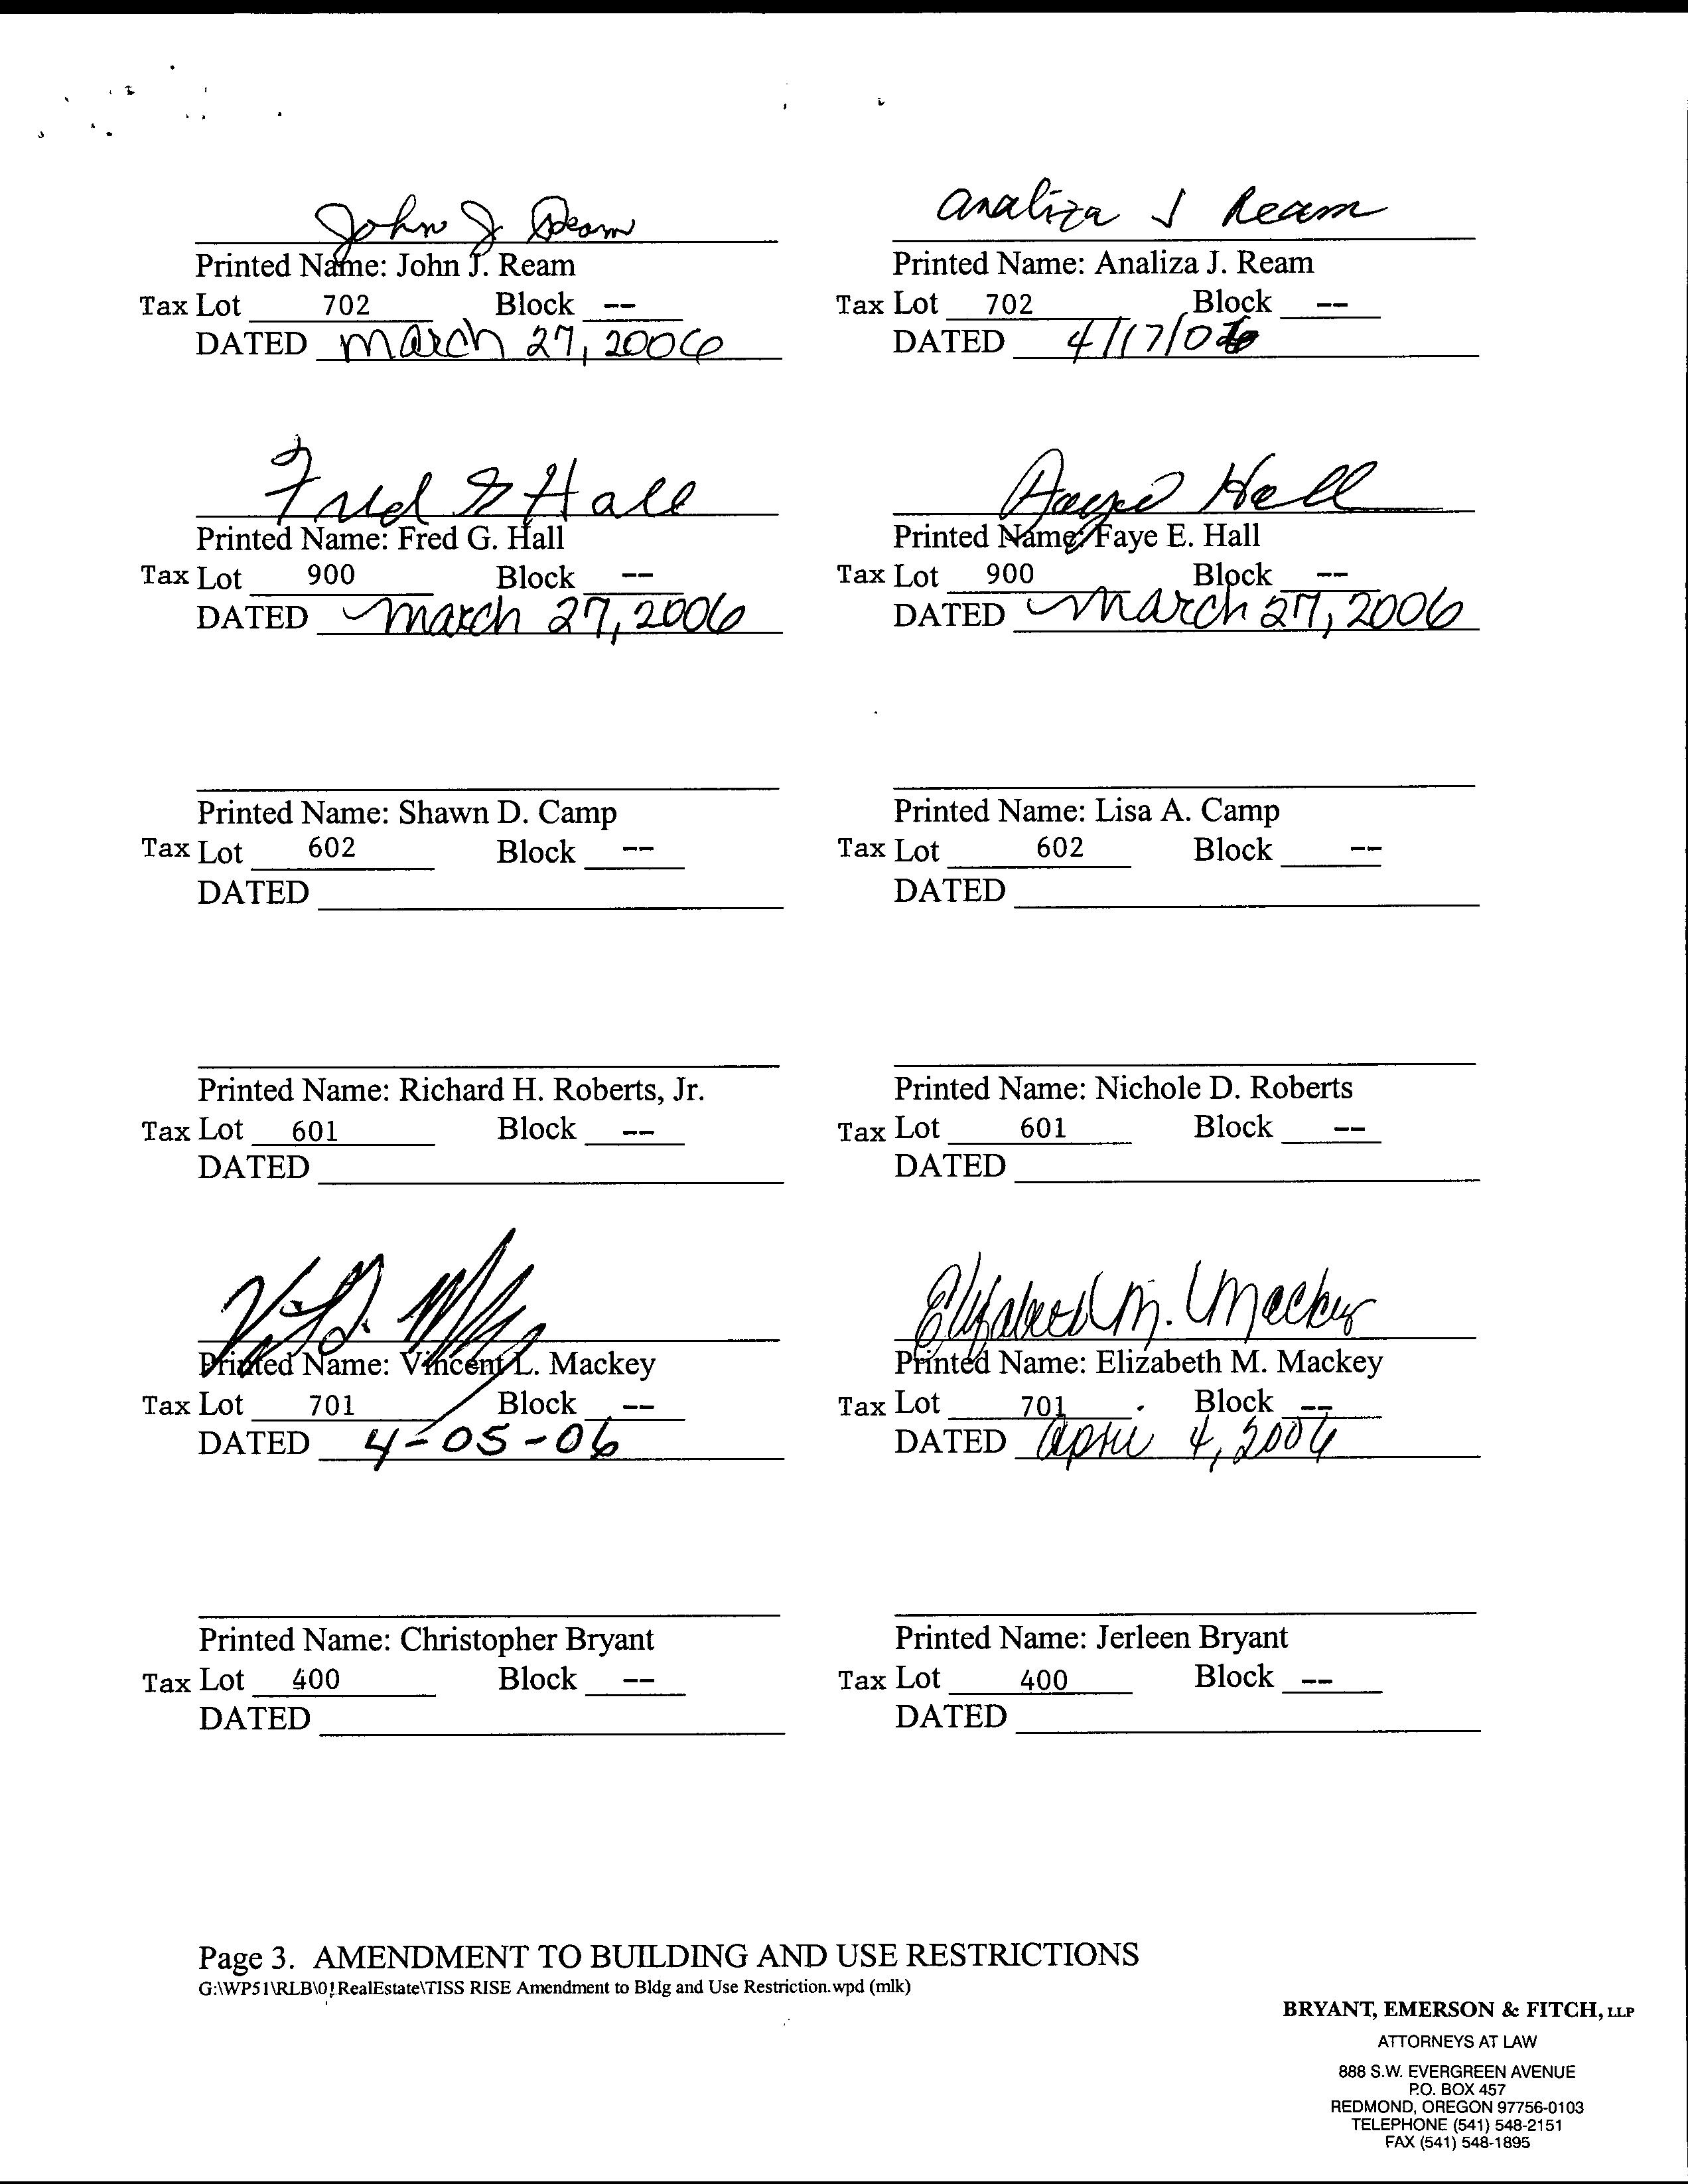 John J Ream
Printed Name: John J. Ream
Tax Lot 702 Block --
DATED March 27, 2006
Analiza J Ream
Printed Name: Analiza J. Ream
Tax Lot 702 Block --
DATED 4/17/06
Fred G Hall
Printed Name: Fred G. Hall
Tax Lot 900 Block --
DATED March 27, 2006
Faye Hall
Printed Name: Faye E. Hall
Tax Lot 900 Block --
DATED March 27, 2006
Printed Name: Shawn D. Camp
Tax Lot 602 Block --
DATED
Printed Name: Lisa A. Camp
Tax Lot 602 Block --
DATED
Printed Name: Richard H. Roberts, Jr.
Tax Lot 601 Block --
DATED
Printed Name: Nichole D. Roberts
Tax Lot 601 Block --
DATED
Printed Name: Vincent L. Mackey
Tax Lot 701 Block --
DATED 4-05-06
Elizabeth M. Mackey
Printed Name: Elizabeth M. Mackey
Tax Lot 701 Block --
DATED April 4, 2006
Printed Name: Christopher Bryant
Tax Lot 400 Block --
DATED
Printed Name: Jerleen Bryant
Tax Lot 400 Block --
DATED
Page 3. AMENDMENT TO BUILDING AND USE RESTRICTIONS
G:\WP51\RLB\01RealEstate\TISS RISE Amendment to Bldg and Use Restriction.wpd (mlk)
BRYANT, EMERSON & FITCH, LLP
ATTORNEYS AT LAW
888 S.W. EVERGREEN AVENUE
P.O. BOX 457
REDMOND, OREGON 97756-0103
TELEPHONE (541) 548-2151
FAX (541) 548-1895